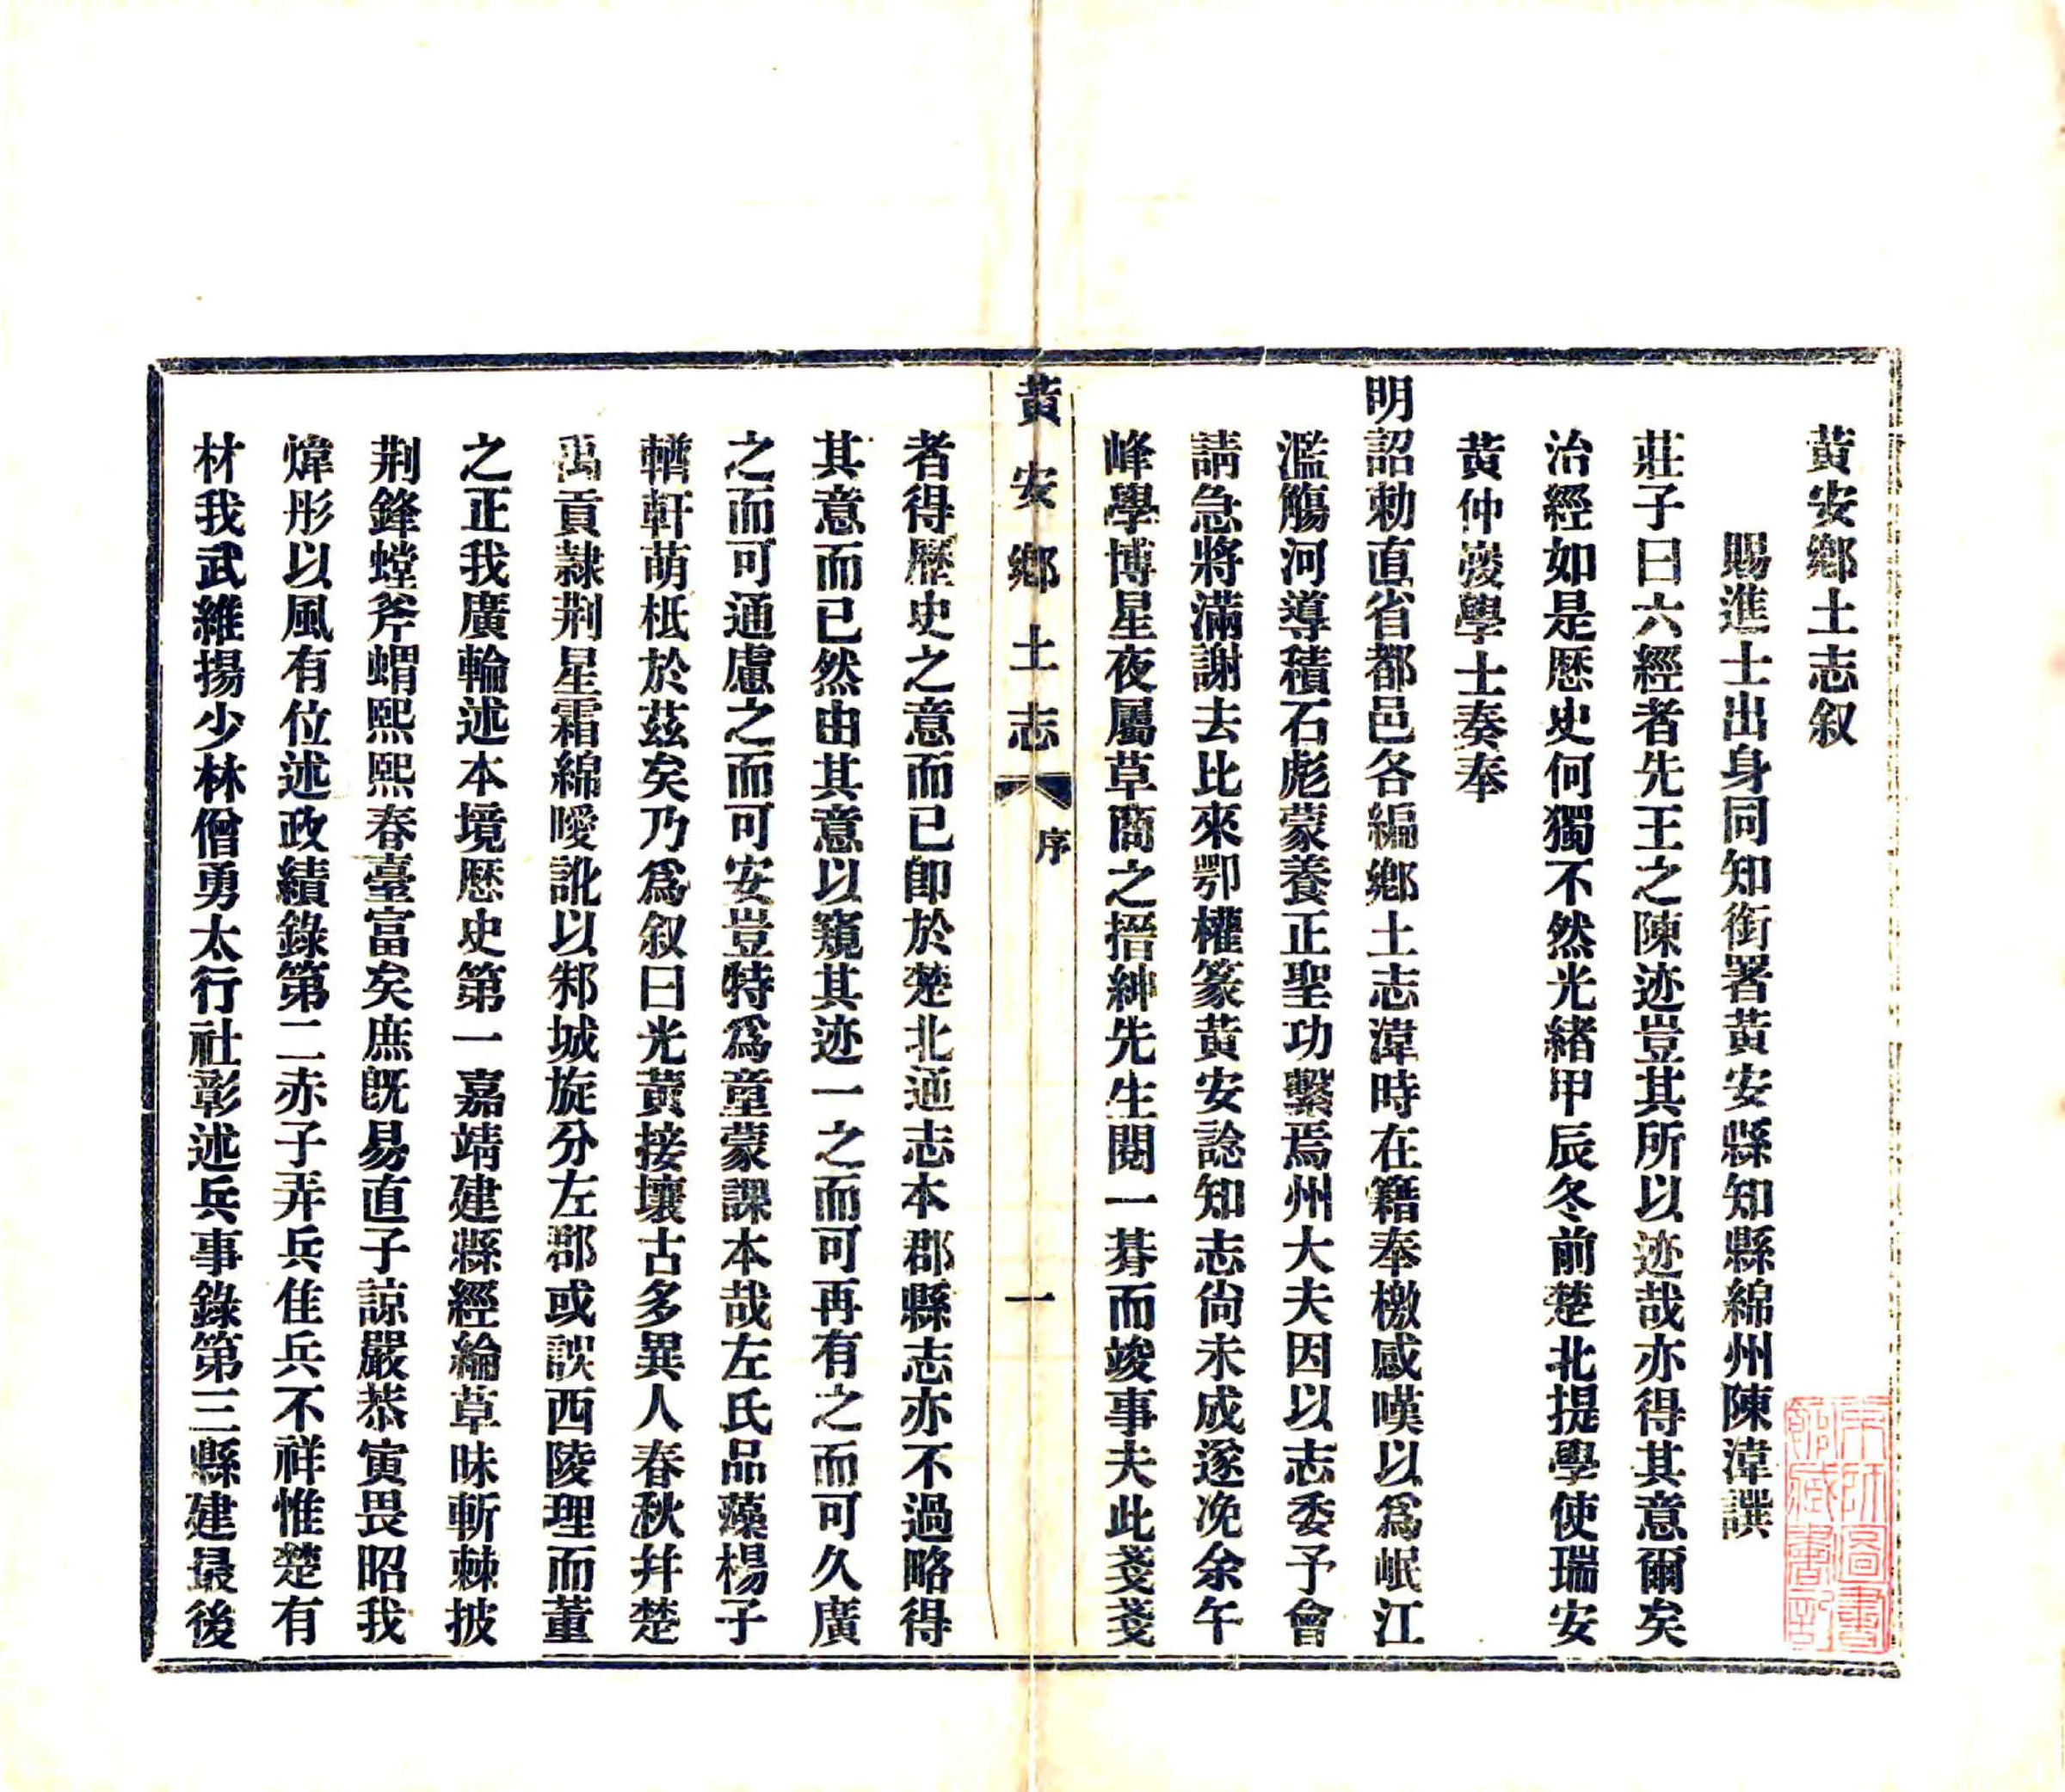 黃安鄉土志叙
賜進士出身同知銜署黃安縣知縣綿州陳湋譔
莊子曰六經者先王之陳迹豈其所以迹哉亦得其意爾矣
治經如是歷史何獨不然光緒甲辰冬前楚北提學使瑞安
黃仲弢學士奏奉
明詔勅直省都邑各編鄉土志湋時在籍奉檄感嘆以爲岷江
濫觴河導積石彪蒙養正聖功繫焉州大夫因以志委予會
請急將滿謝去比來鄂權篆黃安諗知志尙未成遂浼余午
峰學博星夜屬草商之搢紳先生閱一朞而竣事夫此戔戔
黃安鄉土志
序
一
者得歷史之意而已卽於楚北通志本郡縣志亦不過略得
其意而已然由其意以窺其迹一之而可再有之而可久廣
之而可通慮之而可安豈特爲童蒙課本哉左氏品藻楊子
輶軒萌柢於茲矣乃爲叙曰光黃接壤古多異人春秋幷楚
禹貢隸荆星霜綿曖訛以邾城旋分左郡或誤西陵理而董
之正我廣輪述本境歷史第一嘉靖建縣經綸草昧斬棘披
荆鋒螳斧蝟熙熙春臺富矣庶旣易直子諒嚴恭寅畏昭我
煒彤以風有位述政績錄第二赤子弄兵佳兵不祥惟楚有
材我武維揚少林僧勇太行社彰述兵事錄第三縣建最後